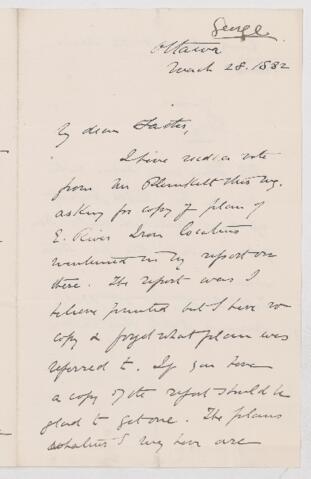 George
Ottawa
March 28. 1882
My dear Father,
I have recd a note
from Mr Plunkett this mg.
asking for copy of plan of
E. River Iron locations
mentioned in my report on
there. The report was I
believe printed but I have no
copy & forget what plan was
referred to. If you have
a copy of the report should be
glad to get one. The plans
I may have are